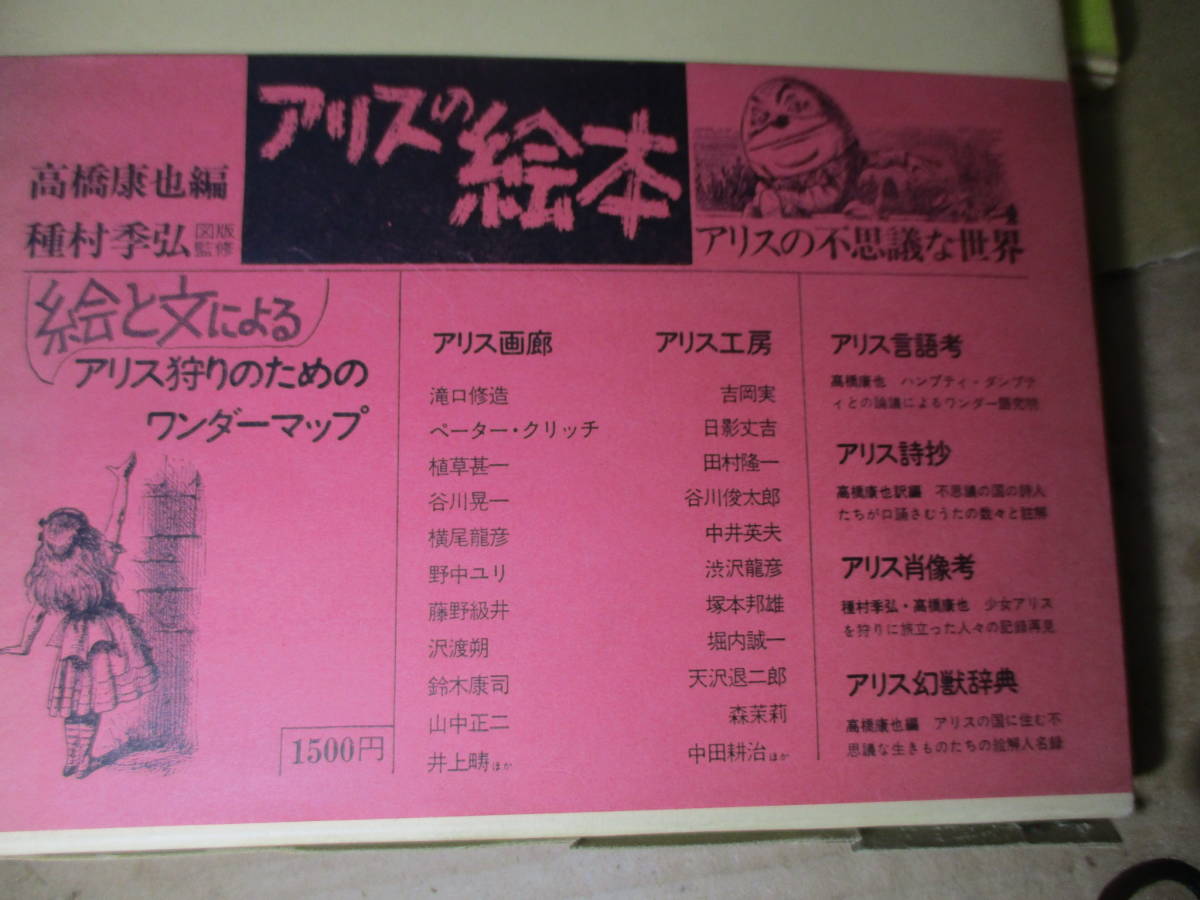 アリスの絵本
高橋康也編
種村季弘 図版監修
アリスの不思議な世界
絵と文による
アリス狩りのための
ワンダーマップ
1500円
アリス画廊
滝口修造
ペーター・クリッチ
植草甚一
谷川晃一
横尾龍彦
野中ユリ
藤野級井
沢渡朔
鈴木康司
山中正二
井上疇ほか
アリス工房
吉岡実
日影丈吉
田村隆一
谷川俊太郎
中井英夫
渋沢龍彦
塚本邦雄
堀内誠一
天沢退二郎
森茉莉
中田耕治ほか
アリス言語考
高橋康也 ハンプティ・ダンプテ
ィとの論議によるワンダー語究明
アリス詩抄
高橋康也訳編 不思議の国の詩人
たちが口誦さむうたの数々と註解
アリス肖像考
種村季弘・高橋康也 少女アリス
を狩りに旅立った人々の記録再見
アリス幻獣辞典
高橋康也編 アリスの国に住む不
思議な生きものたちの絵解人名録